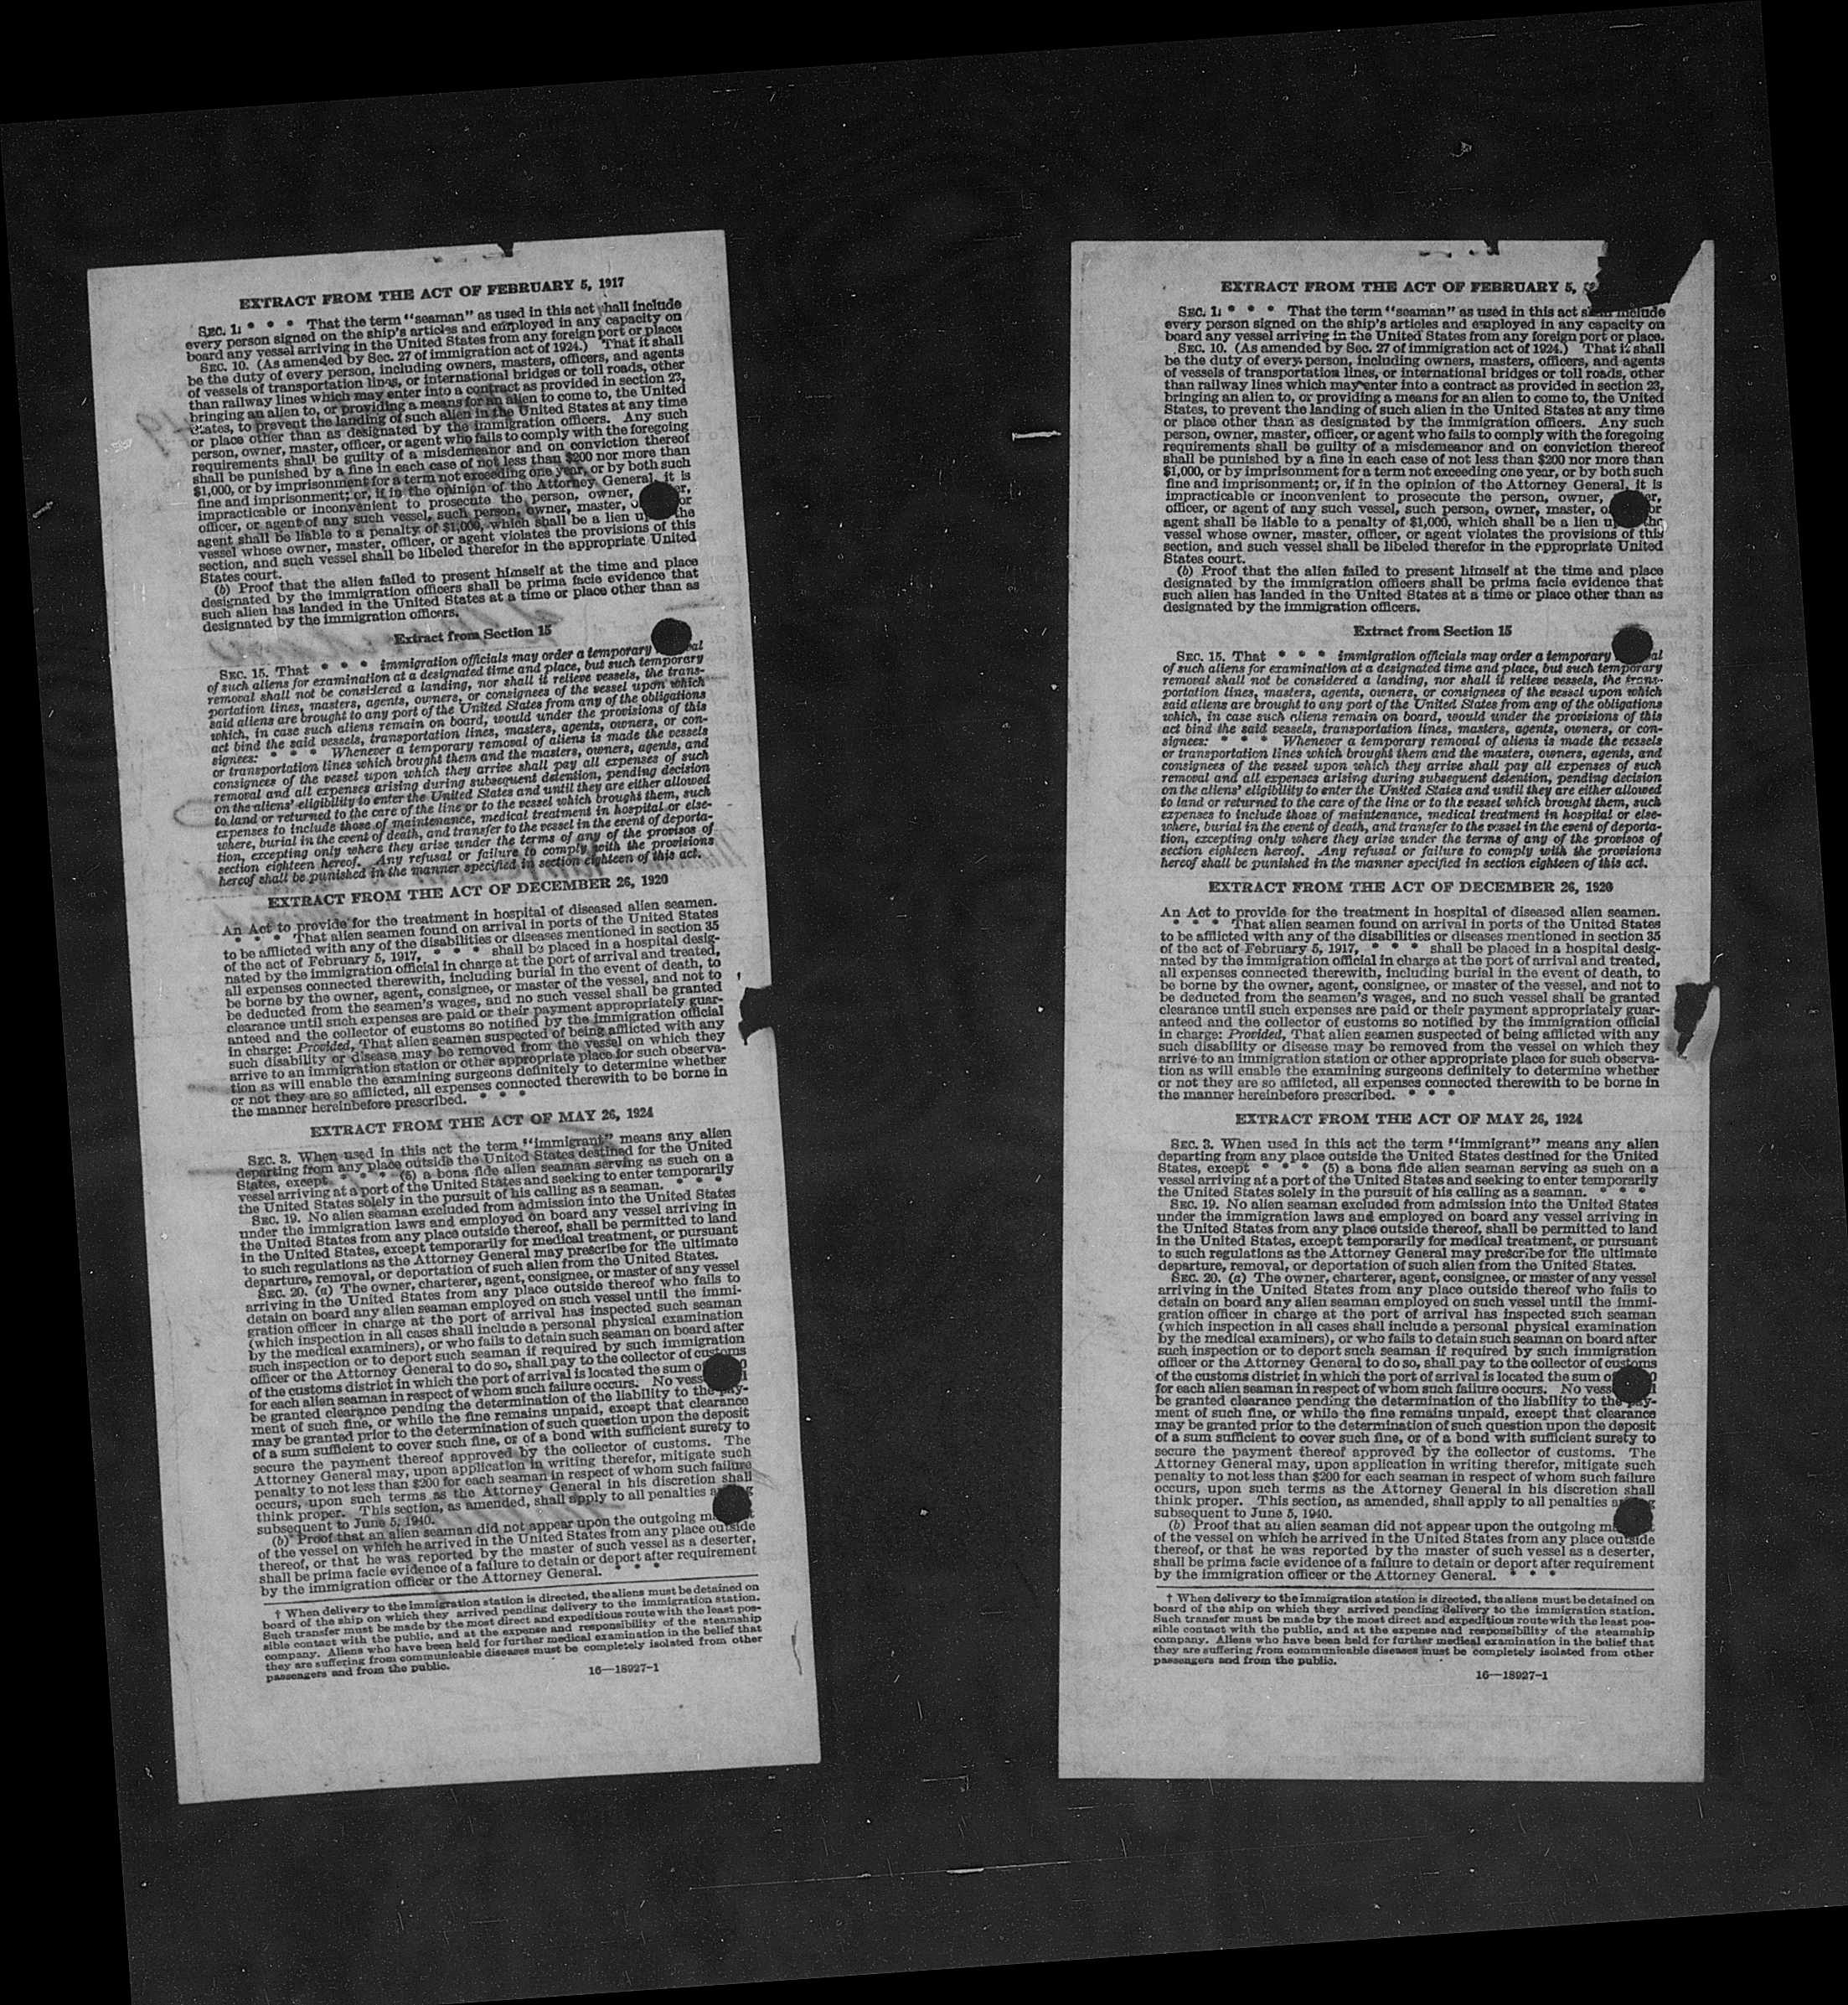 EXTRACT FROM THE ACT OF FEBRUARY 5, 1917
SEC. 1: * * * That the term "seaman" as used in this act shall include
every person signed on the ship's articles and employed in any capacity on
board any vessel arriving in the United States from any foreign port or place.
SEC. 10. (As amended by Sec. 27 of immigration act of 1924.) That it shall
be the duty of every person, including owners, masters, officers, and agents
of vessels of transportation lines, or international bridges or toll roads, other
than railway lines which may enter into a contract as provided in section 23,
bringing an alien to, or providing a means for an alien to come to, the United
States, to prevent the landing of such alien in the United States at any time
or place other than as designated by the immigration officers. Any such
person, owner, master, officer, or agent who fails to comply with the foregoing
requirements shall be guilty of a misdemeanor and on conviction thereof
shall be punished by a fine in each case of not less than $200 nor more than
$1,000, or by imprisonment for a term not exceeding one year, or by both such
fine and imprisonment; or, if in the opinion of the Attorney General, it is
impracticable or inconvenient to prosecute the person, owner, er,
officer, or agent of any such vessel, such person, owner, master, o or
agent shall be liable to a penalty of $1,000, which shall be a lien u the
vessel whose owner, master, officer, or agent violates the provisions of this
section, and such vessel shall be libeled therefor in the appropriate United
States court.
(b) Proof that the alien failed to present himself at the time and place
designated by the immigration officers shall be prima facie evidence that
such alien has landed in the United States at a time or place other than as
designated by the immigration officers.
Extract from Section 15
SEC. 15. That * * * immigration officials may order a temporary al
of such aliens for examination at a designated time and place, but such temporary
removal shall not be considered a landing, nor shall it relieve vessels, the trans-
portation lines, masters, agents, owners, or consignees of the vessel upon which
said aliens are brought to any port of the United States from any of the obligations
which, in case such aliens remain on board, would under the provisions of this
act bind the said vessels, transportation lines, masters, agents, owners, or con-
signees: * * * Whenever a temporary removal of aliens is made the vessels
or transportation lines which brought them and the masters, owners, agents, and
consignees of the vessel upon which they arrive shall pay all expenses of such
removal and all expenses arising during subsequent detention, pending decision
on the aliens' eligibility to enter the United States and until they are either allowed
to land or returned to the care of the line or to the vessel which brought them, such
expenses to include those of maintenance, medical treatment in hospital or else-
where, burial in the event of death, and transfer to the vessel in the event of deporta-
tion, excepting only where they arise under the terms of any of the provisos of
section eighteen hereof. Any refusal or failure to comply with the provisions
hereof shall be punished in the manner specified in section eighteen of this act.
EXTRACT FROM THE ACT OF DECEMBER 26, 1920
An Act to provide for the treatment in hospital of diseased alien seamen.
* * * That alien seamen found on arrival in ports of the United States
to be afflicted with any of the disabilities or diseases mentioned in section 35
of the act of February 5, 1917, * * * shall be placed in a hospital desig-
nated by the immigration official in charge at the port of arrival and treated,
all expenses connected therewith, including burial in the event of death, to
be borne by the owner, agent, consignee, or master of the vessel, and not to
be deducted from the seamen's wages, and no such vessel shall be granted
clearance until such expenses are paid or their payment appropriately guar-
anteed and the collector of customs so notified by the immigration official
in charge: Provided, That alien seamen suspected of being afflicted with any
such disability or disease may be removed from the vessel on which they
arrive to an immigration station or other appropriate place for such observa-
tion as will enable the examining surgeons definitely to determine whether
or not they are so afflicted, all expenses connected therewith to be borne in
the manner hereinbefore prescribed. * * *
EXTRACT FROM THE ACT OF MAY 26, 1924
SEC. 3. When used in this act the term "immigrant" means any alien
departing from any place outside the United States destined for the United
States, except * * * (5) a bona fide alien seaman serving as such on a
vessel arriving at a port of the United States and seeking to enter temporarily
the United States solely in the pursuit of his calling as a seaman. * * *
SEC. 19. No alien seaman excluded from admission into the United States
under the immigration laws and employed on board any vessel arriving in
the United States from any place outside thereof, shall be permitted to land
in the United States, except temporarily for medical treatment, or pursuant
to such regulations as the Attorney General may prescribe for the ultimate
departure, removal, or deportation of such alien from the United States.
SEC. 20. (a) The owner, charterer, agent, consignee, or master of any vessel
arriving in the United States from any place outside thereof who fails to
detain on board any alien seaman employed on such vessel until the immi-
gration officer in charge at the port of arrival has inspected such seaman
(which inspection in all cases shall include a personal physical examination
by the medical examiners), or who fails to detain such seaman on board after
such inspection or to deport such seaman if required by such immigration
officer or the Attorney General to do so, shall pay to the collector of customs
of the customs district in which the port of arrival is located the sum o
for each alien seaman in respect of whom such failure occurs. No vess l
be granted clearance pending the determination of the liability to the pay-
ment of such fine, or while the fine remains unpaid, except that clearance
may be granted prior to the determination of such question upon the deposit
of a sum sufficient to cover such fine, or of a bond with sufficient surety to
secure the payment thereof approved by the collector of customs. The
Attorney General may, upon application in writing therefor, mitigate such
penalty to not less than $200 for each seaman in respect of whom such failure
occurs, upon such terms as the Attorney General in his discretion shall
think proper. This section, as amended, shall apply to all penalties a g
subsequent to June 5, 1940.
(b) Proof that an alien seaman did not appear upon the outgoing m
of the vessel on which he arrived in the United States from any place outside
thereof, or that he was reported by the master of such vessel as a deserter,
shall be prima facie evidence of a failure to detain or deport after requirement
by the immigration officer or the Attorney General. * * *
† When delivery to the immigration station is directed, the aliens must be detained on
board of the ship on which they arrived pending delivery to the immigration station.
Such transfer must be made by the most direct and expeditious route with the least pos-
sible contact with the public, and at the expense and responsibility of the steamship
company. Aliens who have been held for further medical examination in the belief that
they are suffering from communicable diseases must be completely isolated from other
passengers and from the public.
16—18927-1
EXTRACT FROM THE ACT OF FEBRUARY 5,
SEC. 1: * * * That the term "seaman" as used in this act shall include
every person signed on the ship's articles and employed in any capacity on
board any vessel arriving in the United States from any foreign port or place.
SEC. 10. (As amended by Sec. 27 of immigration act of 1924.) That it shall
be the duty of every person, including owners, masters, officers, and agents
of vessels of transportation lines, or international bridges or toll roads, other
than railway lines which may enter into a contract as provided in section 23,
bringing an alien to, or providing a means for an alien to come to, the United
States, to prevent the landing of such alien in the United States at any time
or place other than as designated by the immigration officers. Any such
person, owner, master, officer, or agent who fails to comply with the foregoing
requirements shall be guilty of a misdemeanor and on conviction thereof
shall be punished by a fine in each case of not less than $200 nor more than
$1,000, or by imprisonment for a term not exceeding one year, or by both such
fine and imprisonment; or, if in the opinion of the Attorney General, it is
impracticable or inconvenient to prosecute the person, owner, er,
officer, or agent of any such vessel, such person, owner, master, o or
agent shall be liable to a penalty of $1,000, which shall be a lien u the
vessel whose owner, master, officer, or agent violates the provisions of this
section, and such vessel shall be libeled therefor in the appropriate United
States court.
(b) Proof that the alien failed to present himself at the time and place
designated by the immigration officers shall be prima facie evidence that
such alien has landed in the United States at a time or place other than as
designated by the immigration officers.
Extract from Section 15
SEC. 15. That * * * immigration officials may order a temporary al
of such aliens for examination at a designated time and place, but such temporary
removal shall not be considered a landing, nor shall it relieve vessels, the trans-
portation lines, masters, agents, owners, or consignees of the vessel upon which
said aliens are brought to any port of the United States from any of the obligations
which, in case such aliens remain on board, would under the provisions of this
act bind the said vessels, transportation lines, masters, agents, owners, or con-
signees: * * * Whenever a temporary removal of aliens is made the vessels
or transportation lines which brought them and the masters, owners, agents, and
consignees of the vessel upon which they arrive shall pay all expenses of such
removal and all expenses arising during subsequent detention, pending decision
on the aliens' eligibility to enter the United States and until they are either allowed
to land or returned to the care of the line or to the vessel which brought them, such
expenses to include those of maintenance, medical treatment in hospital or else-
where, burial in the event of death, and transfer to the vessel in the event of deporta-
tion, excepting only where they arise under the terms of any of the provisos of
section eighteen hereof. Any refusal or failure to comply with the provisions
hereof shall be punished in the manner specified in section eighteen of this act.
EXTRACT FROM THE ACT OF DECEMBER 26, 1920
An Act to provide for the treatment in hospital of diseased alien seamen.
* * * That alien seamen found on arrival in ports of the United States
to be afflicted with any of the disabilities or diseases mentioned in section 35
of the act of February 5, 1917, * * * shall be placed in a hospital desig-
nated by the immigration official in charge at the port of arrival and treated,
all expenses connected therewith, including burial in the event of death, to
be borne by the owner, agent, consignee, or master of the vessel, and not to
be deducted from the seamen's wages, and no such vessel shall be granted
clearance until such expenses are paid or their payment appropriately guar-
anteed and the collector of customs so notified by the immigration official
in charge: Provided, That alien seamen suspected of being afflicted with any
such disability or disease may be removed from the vessel on which they
arrive to an immigration station or other appropriate place for such observa-
tion as will enable the examining surgeons definitely to determine whether
or not they are so afflicted, all expenses connected therewith to be borne in
the manner hereinbefore prescribed. * * *
EXTRACT FROM THE ACT OF MAY 26, 1924
SEC. 3. When used in this act the term "immigrant" means any alien
departing from any place outside the United States destined for the United
States, except * * * (5) a bona fide alien seaman serving as such on a
vessel arriving at a port of the United States and seeking to enter temporarily
the United States solely in the pursuit of his calling as a seaman. * * *
SEC. 19. No alien seaman excluded from admission into the United States
under the immigration laws and employed on board any vessel arriving in
the United States from any place outside thereof, shall be permitted to land
in the United States, except temporarily for medical treatment, or pursuant
to such regulations as the Attorney General may prescribe for the ultimate
departure, removal, or deportation of such alien from the United States.
SEC. 20. (a) The owner, charterer, agent, consignee, or master of any vessel
arriving in the United States from any place outside thereof who fails to
detain on board any alien seaman employed on such vessel until the immi-
gration officer in charge at the port of arrival has inspected such seaman
(which inspection in all cases shall include a personal physical examination
by the medical examiners), or who fails to detain such seaman on board after
such inspection or to deport such seaman if required by such immigration
officer or the Attorney General to do so, shall pay to the collector of customs
of the customs district in which the port of arrival is located the sum o
for each alien seaman in respect of whom such failure occurs. No vess l
be granted clearance pending the determination of the liability to the pay-
ment of such fine, or while the fine remains unpaid, except that clearance
may be granted prior to the determination of such question upon the deposit
of a sum sufficient to cover such fine, or of a bond with sufficient surety to
secure the payment thereof approved by the collector of customs. The
Attorney General may, upon application in writing therefor, mitigate such
penalty to not less than $200 for each seaman in respect of whom such failure
occurs, upon such terms as the Attorney General in his discretion shall
think proper. This section, as amended, shall apply to all penalties a g
subsequent to June 5, 1940.
(b) Proof that an alien seaman did not appear upon the outgoing m
of the vessel on which he arrived in the United States from any place outside
thereof, or that he was reported by the master of such vessel as a deserter,
shall be prima facie evidence of a failure to detain or deport after requirement
by the immigration officer or the Attorney General. * * *
† When delivery to the immigration station is directed, the aliens must be detained on
board of the ship on which they arrived pending delivery to the immigration station.
Such transfer must be made by the most direct and expeditious route with the least pos-
sible contact with the public, and at the expense and responsibility of the steamship
company. Aliens who have been held for further medical examination in the belief that
they are suffering from communicable diseases must be completely isolated from other
passengers and from the public.
16—18927-1